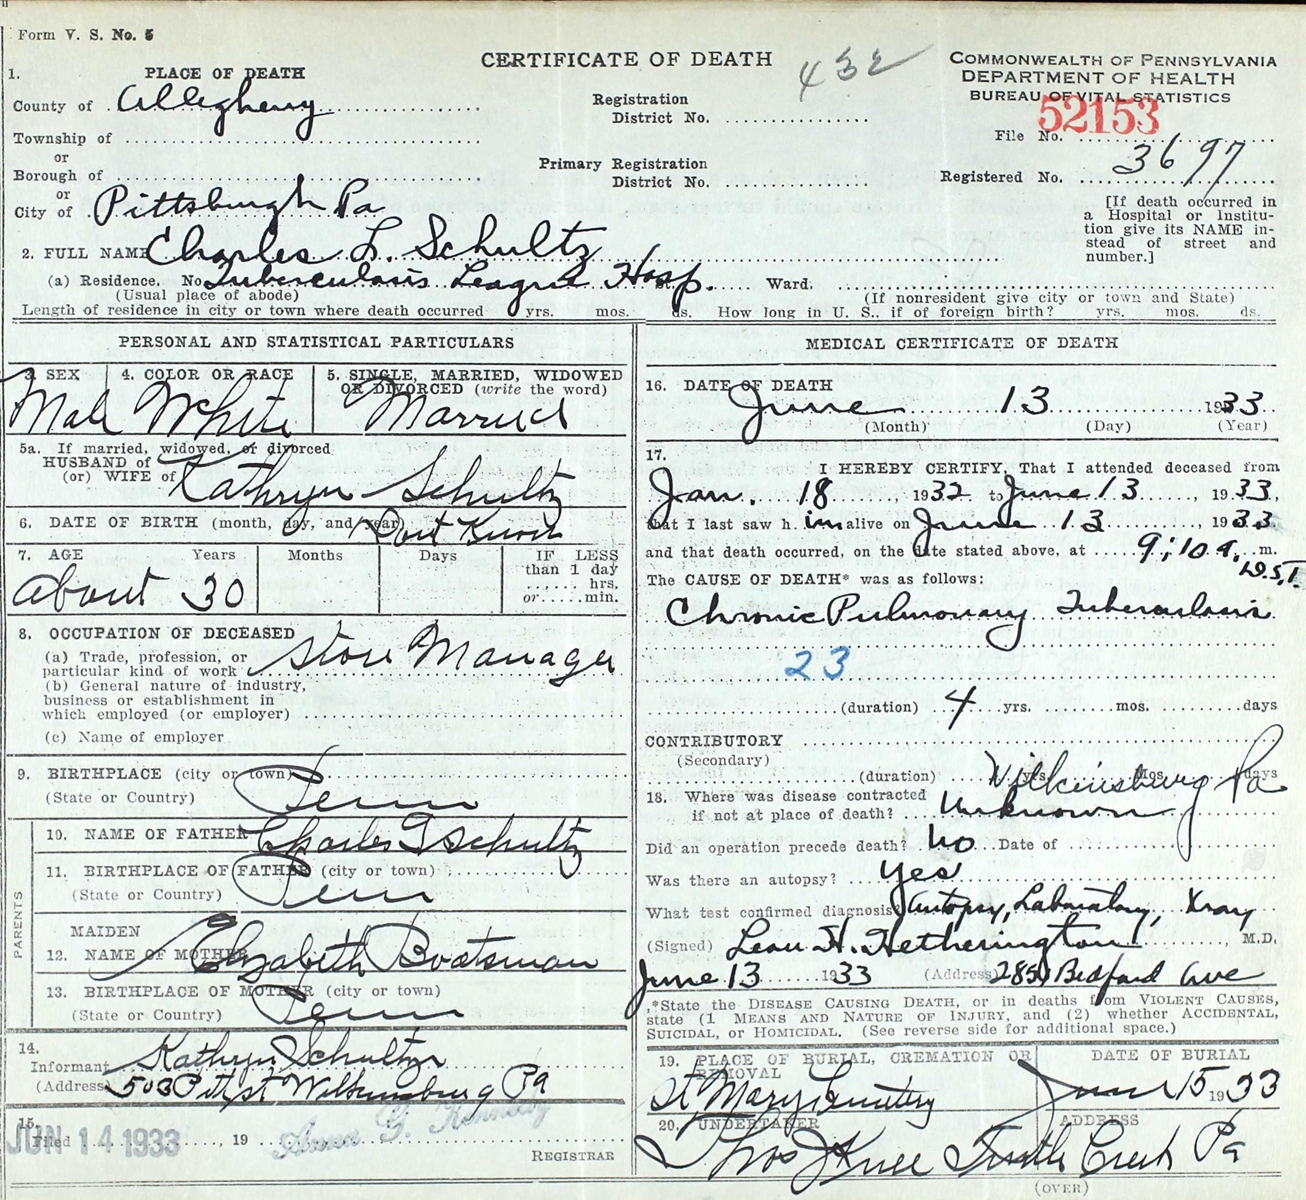 Form V. S. No. 5
CERTIFICATE OF DEATH
432
COMMONWEALTH OF PENNSYLVANIA
DEPARTMENT OF HEALTH
BUREAU OF VITAL STATISTICS
1. PLACE OF DEATH
County of Allegheny
Township of
or
Borough of
or
City of Pittsburgh Pa
Registration
District No.
Primary Registration
District No.
52153
File No.
Registered No. 3697
[If death occurred in
a Hospital or Institu-
tion give its NAME in-
stead of street and
number.]
2. FULL NAME Charles L. Schultz
(a) Residence. No. Tuberculosis League Hosp. St. Ward.
(Usual place of abode) (If nonresident give city or town and State)
Length of residence in city or town where death occurred yrs. mos. ds. How long in U. S., if of foreign birth? yrs. mos. ds.
PERSONAL AND STATISTICAL PARTICULARS
3. SEX 4. COLOR OR RACE 5. SINGLE, MARRIED, WIDOWED
OR DIVORCED (write the word)
Male White Married
5a. If married, widowed, or divorced
HUSBAND of
(or) WIFE of Kathryn Schultz
6. DATE OF BIRTH (month, day, and year) Dont Know
7. AGE Years Months Days IF LESS
than 1 day
hrs.
or min.
about 30
8. OCCUPATION OF DECEASED
(a) Trade, profession, or
particular kind of work Store Manager
(b) General nature of industry,
business or establishment in
which employed (or employer)
(c) Name of employer
9. BIRTHPLACE (city or town)
(State or Country) Penn
PARENTS
10. NAME OF FATHER Charles Schultz
11. BIRTHPLACE OF FATHER (city or town)
(State or Country) Penn
MAIDEN
12. NAME OF MOTHER Elizabeth Boatsman
13. BIRTHPLACE OF MOTHER (city or town)
(State or Country) Penn
14.
Informant Kathryn Schultz
(Address) 503 Pitt st Wilkinsburg Pa
15.
Filed JUN 14 1933, 19 Anna G. Kennedy
REGISTRAR
MEDICAL CERTIFICATE OF DEATH
16. DATE OF DEATH
June 13 1933
(Month) (Day) (Year)
17.
I HEREBY CERTIFY, That I attended deceased from
Jan. 18, 1932 to June 13, 1933,
that I last saw h. im alive on June 13, 1933
and that death occurred, on the date stated above, at 9:10 a. m.
D.S.T.
The CAUSE OF DEATH* was as follows:
Chronic Pulmonary Tuberculosis
23
(duration) 4 yrs. mos. days
CONTRIBUTORY
(Secondary)
(duration) yrs. Mos. days
Wilkinsburg Pa
18. Where was disease contracted
if not at place of death? Unknown
Did an operation precede death? No Date of
Was there an autopsy? Yes
What test confirmed diagnosis Autopsy, Laboratory, Xray
(Signed) Leon H. Hetherington, M.D.
June 13 1933 (Address) 2851 Bedford Ave
*State the DISEASE CAUSING DEATH, or in deaths from VIOLENT CAUSES,
state (1 MEANS AND NATURE OF INJURY, and (2) whether ACCIDENTAL,
SUICIDAL, or HOMICIDAL. (See reverse side for additional space.)
19. PLACE OF BURIAL, CREMATION OR
REMOVAL
St Mary Cemetery
DATE OF BURIAL
June 15 1933
20. UNDERTAKER
Thos J Knee
ADDRESS
Turtle Creek Pa
(OVER)